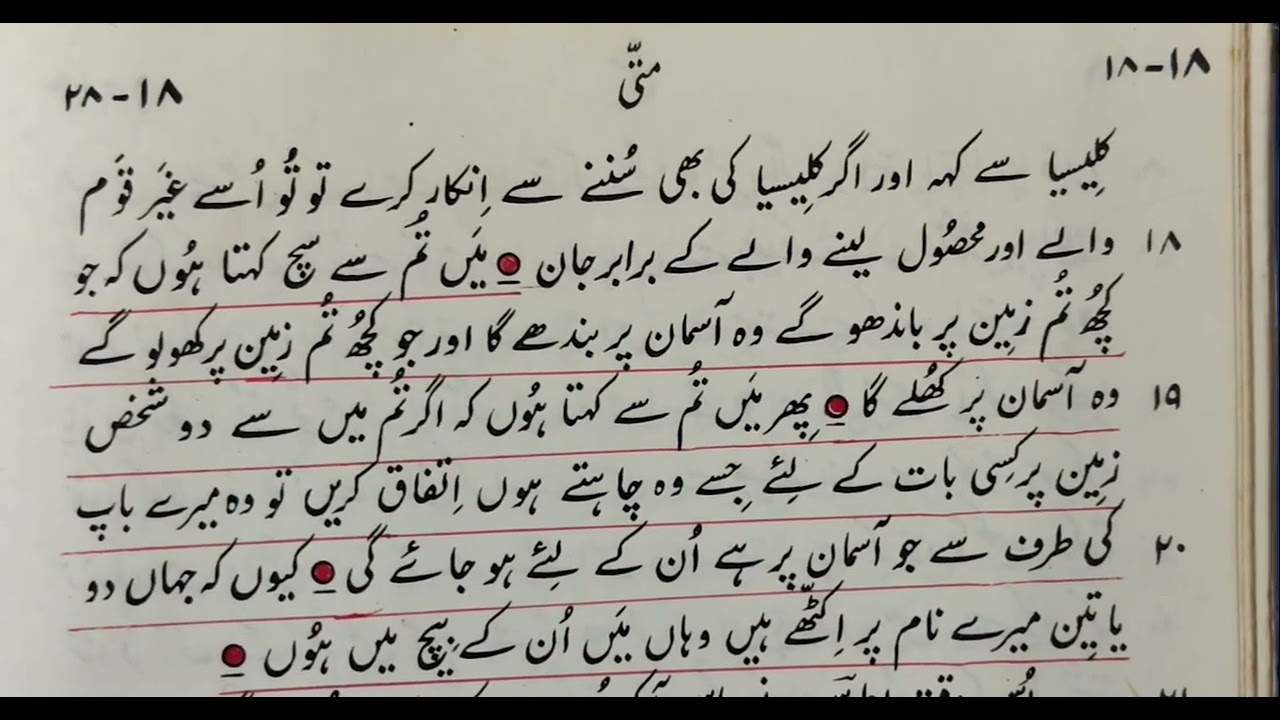 ۱۸-۱۸ متیّ ۱۸-۲۸
کلِیسیا سے کہہ اور اگر کلِیسیا کی بھی سُننے سے اِنکار کرے تو تُو اُسے غَیر قَوم
۱۸ والے اور محصُول لینے والے کے برابر جان ۔ مَیں تُم سے سچ کہتا ہُوں کہ جو
کُچھ تُم زمِین پر باندھو گے وہ آسمان پر بندھے گا اور جو کُچھ تُم زمِین پر کھولو گے
۱۹ وہ آسمان پر کھُلے گا ۔ پِھر مَیں تُم سے کہتا ہُوں کہ اگر تُم میں سے دو شخص
زمِین پر کِسی بات کے لِئے جِسے وہ چاہتے ہوں اِتفاق کریں تو وہ میرے باپ
۲۰ کی طرف سے جو آسمان پر ہے اُن کے لِئے ہو جائے گی ۔ کیوں کہ جہاں دو
یا تِین میرے نام پر اِکٹّھے ہیں وہاں مَیں اُن کے بِیچ میں ہُوں ۔
۲۱